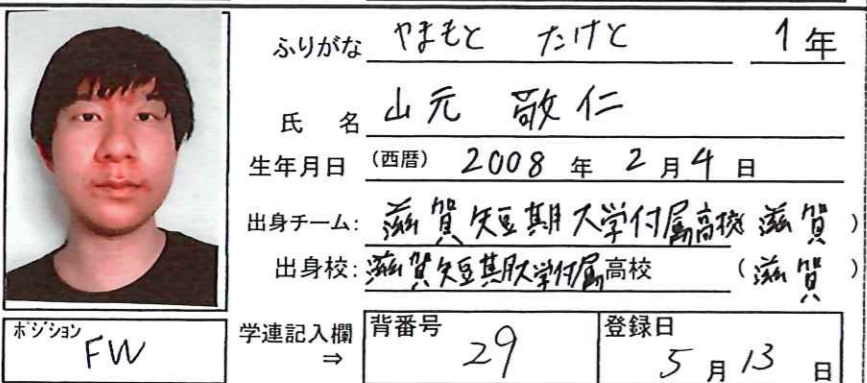 ふりがな やまもと たけと 1年
氏名 山元 敬仁
生年月日 (西暦) 2008 年 2 月 4 日
出身チーム: 滋賀短期大学付属高校( 滋賀 )
出身校: 滋賀短期大学付属高校 ( 滋賀 )
ポジション FW
学連記入欄 ⇒
背番号 29
登録日 5 月 13 日